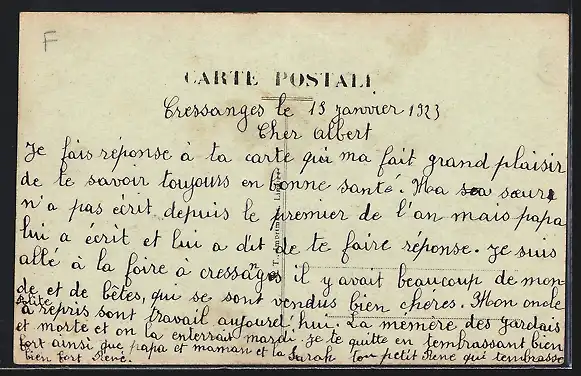 F
CARTE POSTALE
Cressanges le 15 janvier 1923
Cher albert
Je fais réponse à ta carte qui ma fait grand plaisir
de te savoir toujours en bonne santé. Ma sœur
n'a pas écrit depuis le premier de l'an mais papa
lui a écrit et lui a dit de te faire réponse. Je suis
allé à la foire à cressanges il y avait beaucoup de mon-
de et de bêtes, qui se sont vendus bien chères. Mon oncle
à repris sont travail aujourd'hui. La mémère des jardais
et morte et on la enterrait mardi. je te quitte en tembrassant bien
fort ainsi que papa et maman et la Sarah ton petit René qui tembrasse
bien fort René.